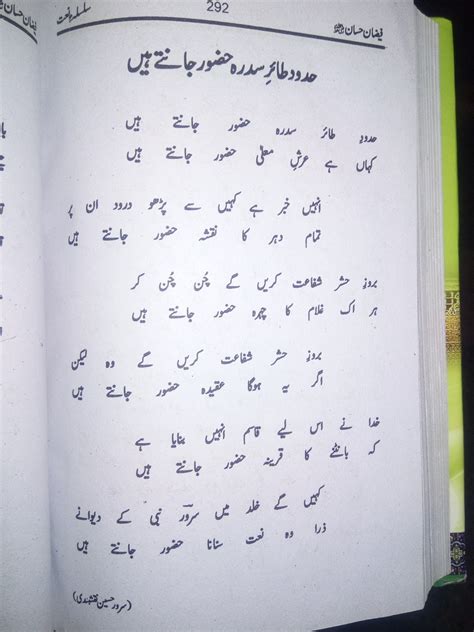 فیضان حسان
292
سلسلہ نعت
حدودِ طائرِ سدرہ حضور جانتے ہیں
حدودِ طائرِ سدرہ حضور جانتے ہیں
کہاں ہے عرشِ معلٰی حضور جانتے ہیں
انہیں خبر ہے کہیں سے پڑھو درود ان پر
تمام دہر کا نقشہ حضور جانتے ہیں
بروزِ حشر شفاعت کریں گے چُن چُن کر
ہر اک غلام کا چہرہ حضور جانتے ہیں
بروزِ حشر شفاعت کریں گے وہ لیکن
اگر یہ ہوگا عقیدہ حضور جانتے ہیں
خدا نے اس لیے قاسم انہیں بنایا ہے
کہ بانٹنے کا قرینہ حضور جانتے ہیں
کہیں گے خلد میں سرور نبی کے دیوانے
ذرا وہ نعت سنانا حضور جانتے ہیں
(سرور حسین نقشبندی)